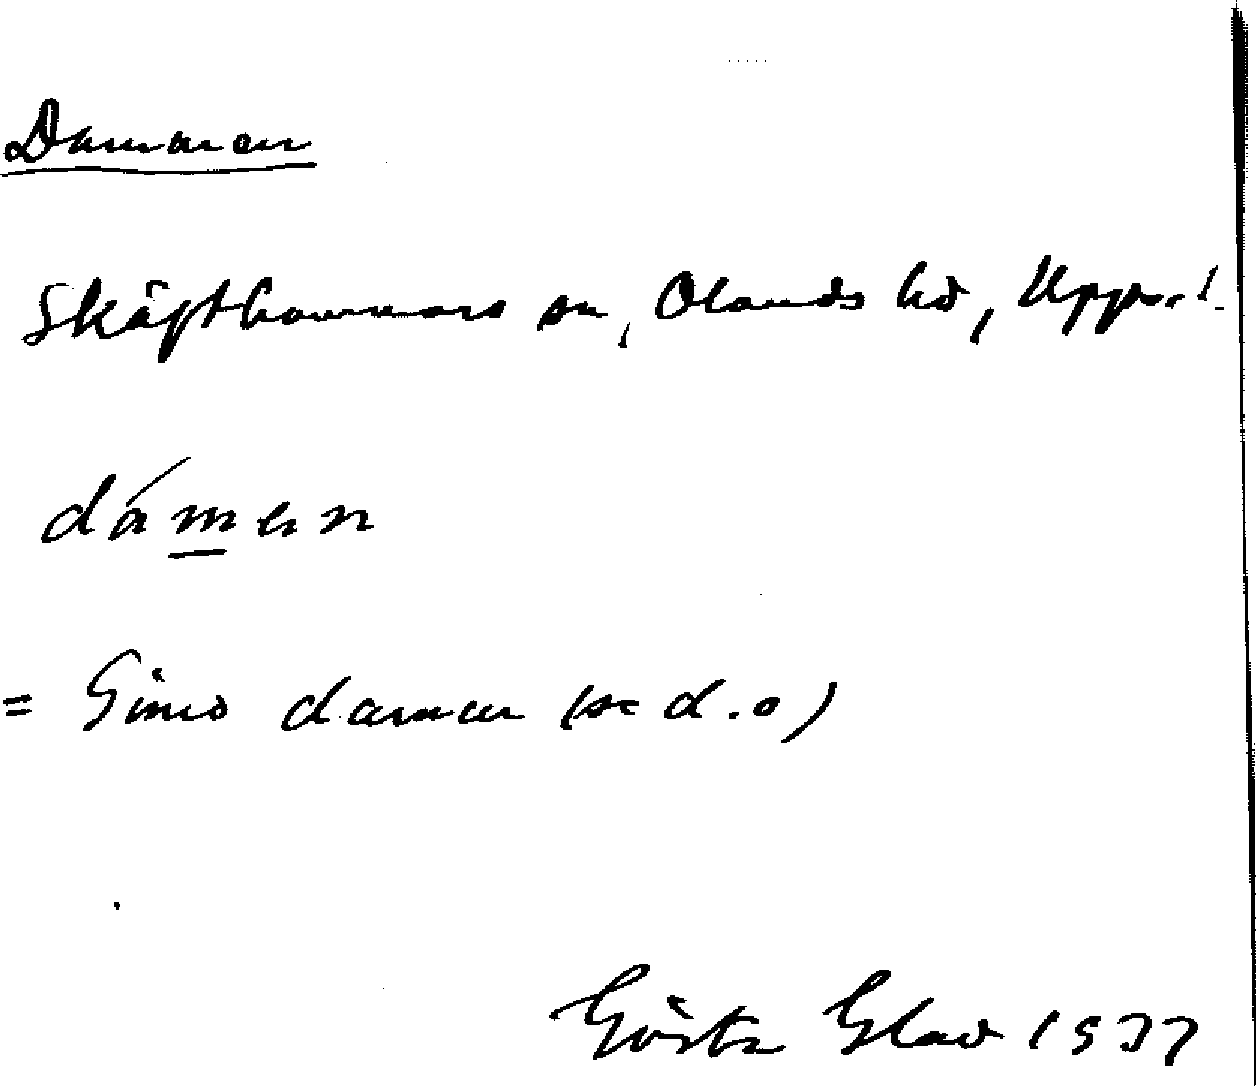 Dammen
Skäfthammars sn, Olands hd, Uppl.
dámen
= Gimo damm (se d.o)
Gösta Glad 1937